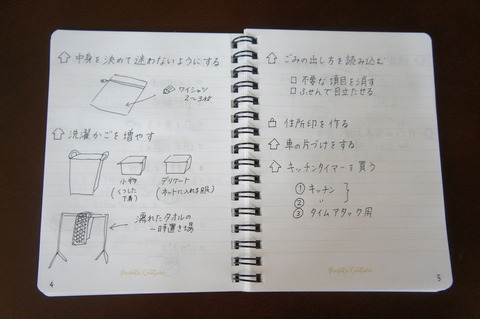 中身を決めて迷わないようにする
ワイシャツ
2〜3枚
洗濯かごを増やす
小物
(くつした
下着)
デリケート
(ネットに入れる服)
濡れたタオルの
一時置き場
4
ごみの出し方を読み込む
不要な項目を消す
ふせんで目立たせる
住所印を作る
車の片づけをする
キッチンタイマーを買う
① キッチン
② 〃
③ タイムアタック用
5